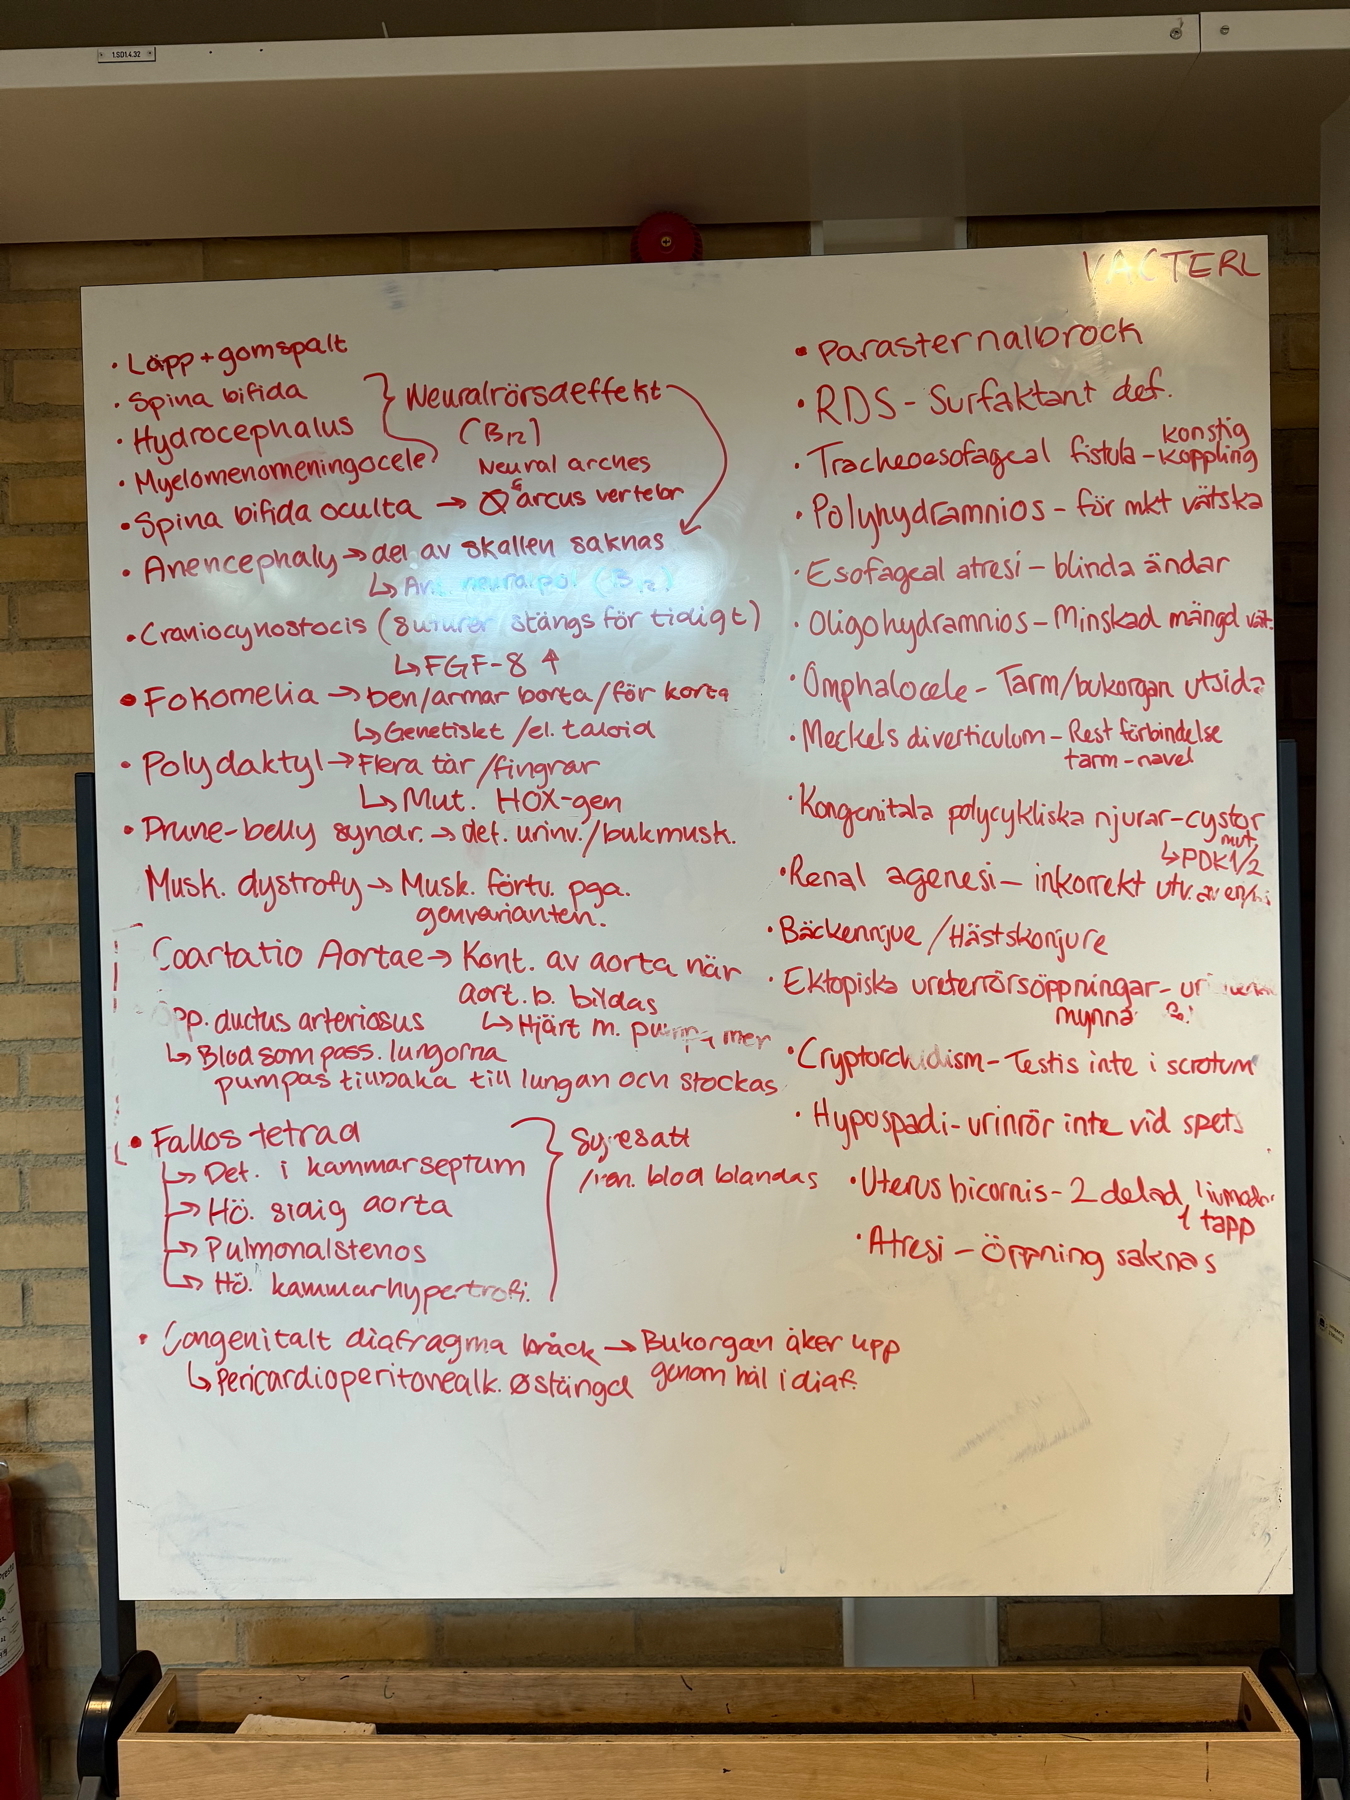 1.SD1.4.32
VACTERL
• Läpp + gomspalt
• Spina bifida
• Hydrocephalus
• Myelomenomeningocele
} Neuralrörsdeffekt
(B12)
Neural arches
• Spina bifida oculta → Ø arcus vertebr
• Anencephaly → del av skallen saknas
↳ Ant. neuralpol (B12)
• Craniocynostocis (suturer stängs för tidigt)
↳ FGF-8 ↑
• Fokomelia → ben/armar borta/för korta
↳ Genetiskt /el. taloid
• Polydaktyl → Flera tår/fingrar
↳ Mut. HOX-gen
• Prune-belly syndr. → def. urinv./bukmusk.
Musk. dystrofy → Musk. förtv. pga.
genvarianten.
Coartatio Aortae → Kont. av aorta när
aort. b. bildas
↳ Hjärt m. pumpa mer
Öpp. ductus arteriosus
↳ Blod som pass. lungorna
pumpas tillbaka till lungan och stockas
• Fallos tetrad
↳ Def. i kammarseptum
↳ Hö. sidig aorta
↳ Pulmonalstenos
↳ Hö. kammarhypertrofi.
} Syresatt
/ven. blod blandas
• Congenitalt diafragma bråck → Bukorgan åker upp
genom hål i diaf.
↳ Pericardioperitonealk. Ø stängd
• Parasternalbrock
• RDS - Surfaktant def.
• Tracheoesofageal fistula - konstig
koppling
• Polyhydramnios - för mkt vätska
• Esofageal atresi - blinda ändar
• Oligohydramnios - Minskad mängd vät.
• Omphalocele - Tarm/bukorgan utsida
• Meckels diverticulum - Rest förbindelse
tarm - navel
• Kongenitala polycykliska njurar - cystor
↳ mut. PDK1/2
• Renal agenesi - inkorrekt utv. av en/
• Bäckennjue / Hästskonjure
• Ektopiska ureterrörsöppningar -
mynna
• Cryptorchidism - Testis inte i scrotum
• Hypospadi - urinrör inte vid spets
• Uterus bicornis - 2 delad, livmodr.
1 tapp
• Atresi - Öppning saknas